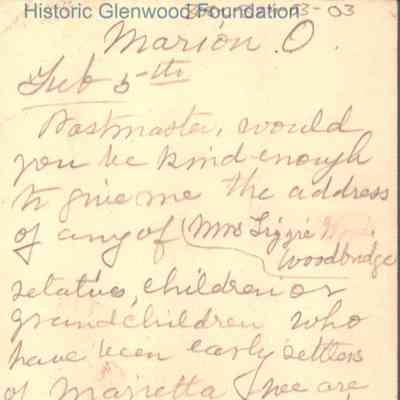 Historic Glenwood Foundation
03
Marion, O.
Feb 5th
Postmaster, would
you be kind enough
to give me the address
of any of Mrs Lizzie
Woodbridge
relatives, children or
grandchildren who
have been early settlers
of Marietta we are